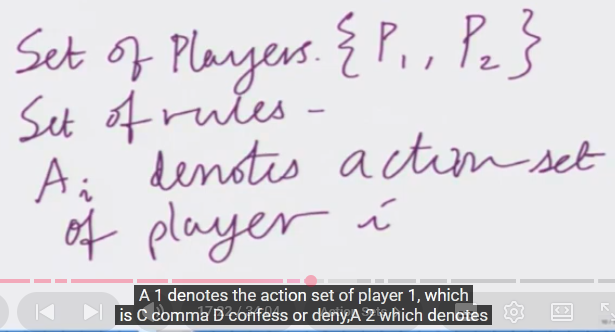 Set of Players. {P₁, P₂}
Set of rules -
Aᵢ denotes action set
of player i
A 1 denotes the action set of player 1, which
is C comma D confess or deny,A 2 which denotes